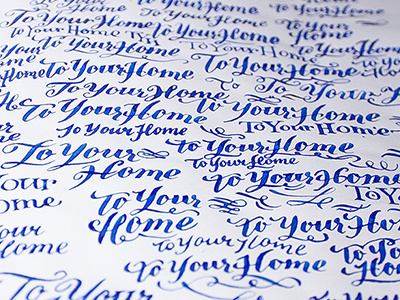 To Your Home
To Your Home
To Your Home
To Your Home
To Your Home
To Your Home
To Your Home
To Your Home
To Your Home
To Your Home
To Your Home
To Your Home
To Your Home
To Your Home
To Your Home
To Your Home
To Your
Home
To Your Home
To Your Home
To Your Home
To Your
Your
Home
To Your
Home
To Your Home
To Your Home
To Your Home
To Your Home
To Your
Home
To Your Home
To Your